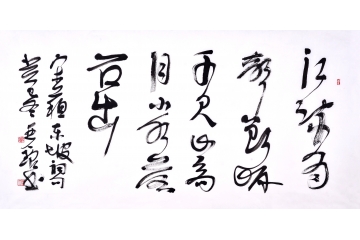 江流有
声断岸
千尺山高
月小水落
石出
东坡词